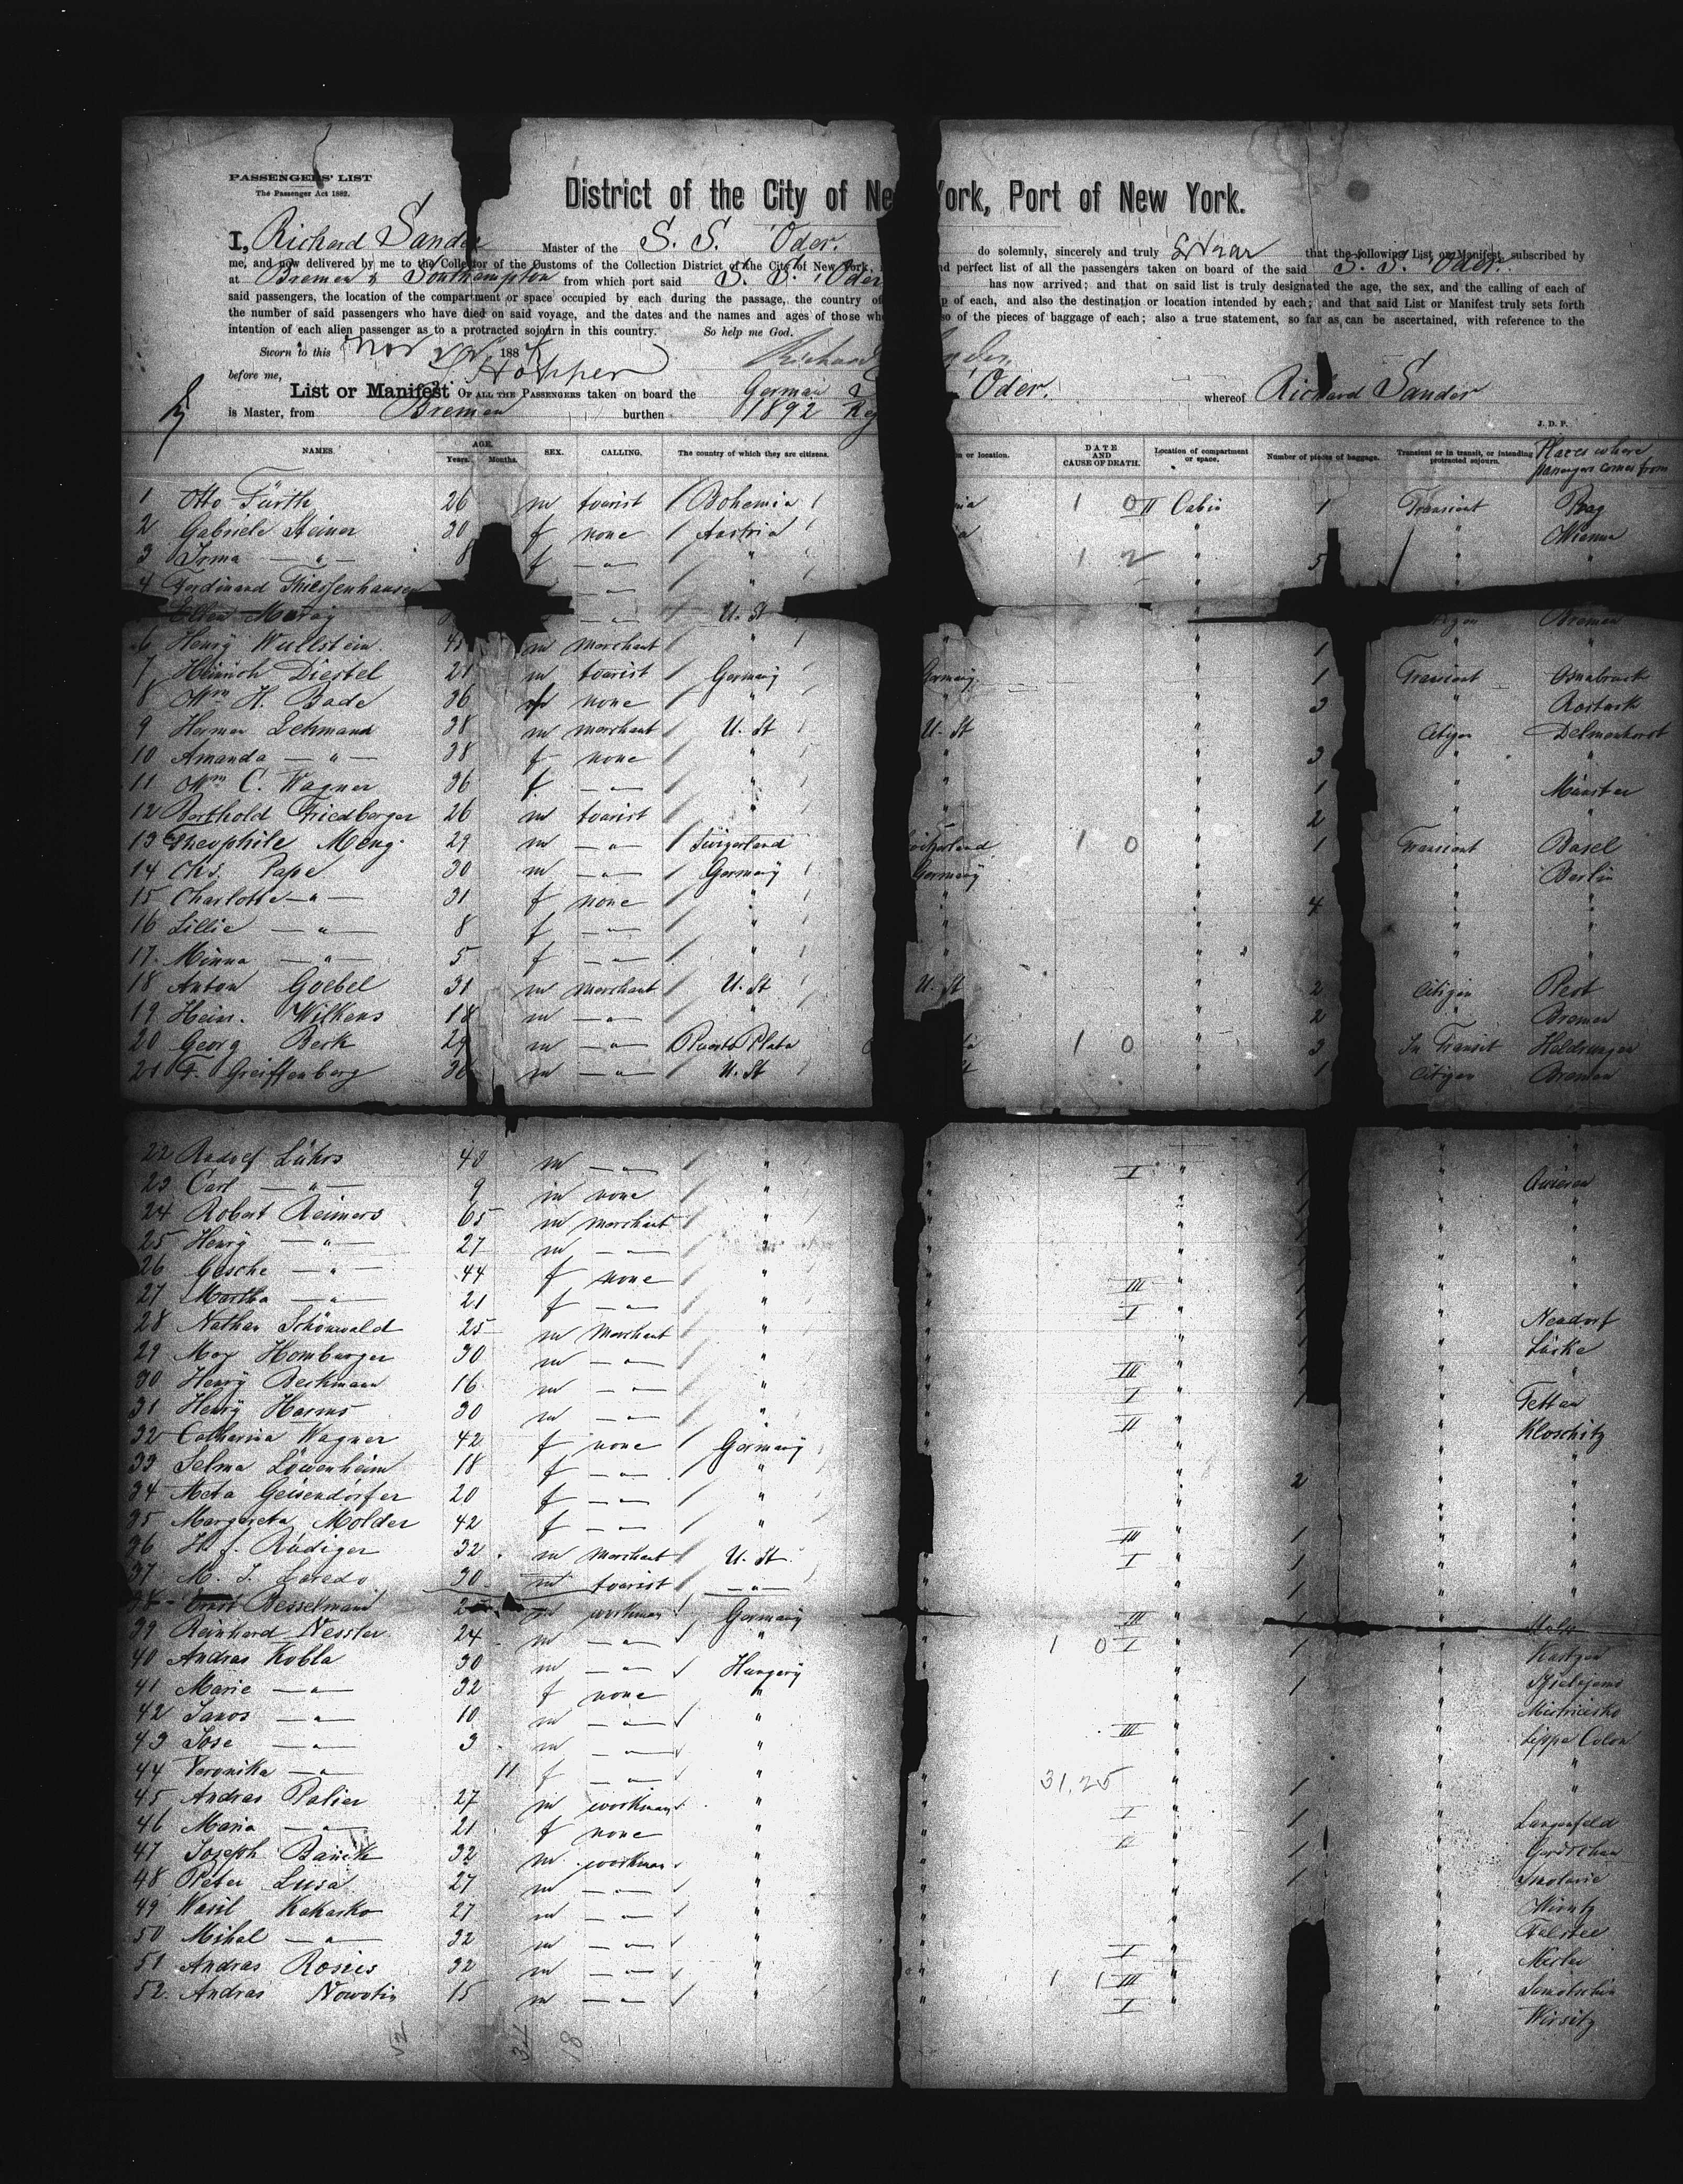 PASSENGERS' LIST
The Passenger Act 1882.
District of the City of Ne York, Port of New York.
I, Richard Sander Master of the S. S. Oder. do solemnly, sincerely and truly Swear that the following List or Manifest, subscribed by
me, and now delivered by me to the Collector of the Customs of the Collection District of the City of New York, nd perfect list of all the passengers taken on board of the said S. S. Oder
at Bremen & Southampton from which port said S. S. Oder has now arrived; and that on said list is truly designated the age, the sex, and the calling of each of
said passengers, the location of the compartment or space occupied by each during the passage, the country of p of each, and also the destination or location intended by each; and that said List or Manifest truly sets forth
the number of said passengers who have died on said voyage, and the dates and the names and ages of those wh so of the pieces of baggage of each; also a true statement, so far as can be ascertained, with reference to the
intention of each alien passenger as to a protracted sojourn in this country. So help me God.
Sworn to this Nov 188 Richard nder
before me, Hopper
List or Manifest OF ALL THE PASSENGERS taken on board the German Oder. whereof Richard Sander
is Master, from Bremen burthen 1892 Reg
J. D. P.
NAMES. AGE. Years. Months. SEX. CALLING. The country of which they are citizens. n or location. DATE AND CAUSE OF DEATH. Location of compartment or space. Number of pieces of baggage. Transient or in transit, or intending protracted sojourn. Places where passengers comes from
1 Otto Fürth 26 m tourist Bohemia ia 1 0 II Cabin 1 Transient Prag
2 Gabriele Steiner 30 f none Austria a " " Wienna
3 Irma — " — 8 f — " — " 1 2 " 5 " "
4 Ferdinand Thiessenhausen — " — "
Ellen — " — U. St Bremen
6 Henry Wullstein 4 m merchant " " " 1 " "
7 Heinrich Diestel 21 m tourist Germany Germany " 1 Transient Osnabruck
8 Wm H. Bade 36 f none " " " 3 " Rostock
9 Herman Lehmann 38 m merchant U. St U. St " Citizen Delmenhorst
10 Amanda — " — 28 f none " " " 3 " "
11 Wm C. Wagner 36 f — " — " " " 1 " Münster
12 Berthold Friedberger 26 m tourist " " " 2 " "
13 Theophile Meng 29 m — " — Switzerland witzerland 1 0 " 1 Transient Basel
14 Chs. Pape 30 m — " — Germany Germany " " Berlin
15 Charlotte — " — 31 f none " " " 4 " "
16 Lillie — " — 8 f — " — " " " " "
17 Minna — " — 5 f — " — " " " " "
18 Anton Goebel 31 m merchant U. St U. St " 2 Citizen Pest
19 Hein. Wilkens 18 m — " — " " 2 " Bremen
20 Georg Beck 29 m — " — Puerto Plata 1 0 " 3 In Transit Heldrungen
21 F. Greiffenberg 36 m — " — U. St " 1 Citizen Bremen
22 Rudolf Lührs 40 m — " — " " I " 1 "
23 Carl — " — 9 m none " " " 1 "
24 Robert Reimers 65 m merchant " " " 1 " "
25 Henry — " — 27 m — " — " " " " "
26 Gesche — " — 44 f none " " " " "
27 Martha — " — 21 f — " — " " III " " "
28 Nathan Schönwald 25 m Merchant " " I " 1 " Neudorf
29 Max Homburger 30 m — " — " " " 1 "
30 Henry Beckmann 16 m — " — " " III " " "
31 Henry Harms 30 m — " — " " I " 1 " Tettau
32 Catharina Wagner 42 f none Germany " II " " Kloschitz
33 Selma Löwenheim 18 f — " — " " " " "
34 Meta Geisendörfer 20 f — " — " " " 2 " "
35 Margareta Molder 42 f — " — " " " " "
36 H. f. Rüdiger 32 m Merchant U. St. " III " 1 " "
37 M. S. Laredo 30 m tourist — " — " I " 1 " "
38 Ernst Besselmann 2 m workman Germany " " 1 "
39 Reinhard Nessler 24 m — " — " " III " 1 "
40 Andras Kobla 30 m — " — Hungery " 1 0 I " 1 "
41 Marie — " — 32 f none " " " 1 "
42 Janos — " — 10 m — " — " " " "
43 Jose — " — 3 m — " — " " III " "
44 Veronika — " — 11 f — " — " " " " "
31,25
45 Andras Palier 27 m workman " " " 1 " "
46 Maria — " — 21 f none " " I " 1 " Langenfeld
47 Joseph 32 m workman " " " 1 "
48 Peter Lusa 27 m — " — " " " 1 "
49 Wasil Kakasko 27 m — " — " " " "
50 Mihal — " — 32 m — " — " " " "
51 Andras 32 m — " — " " I " "
52. Andras Nowotin 15 m — " — " " 1 1 III " "
I " " Wirsitz
52 34 18